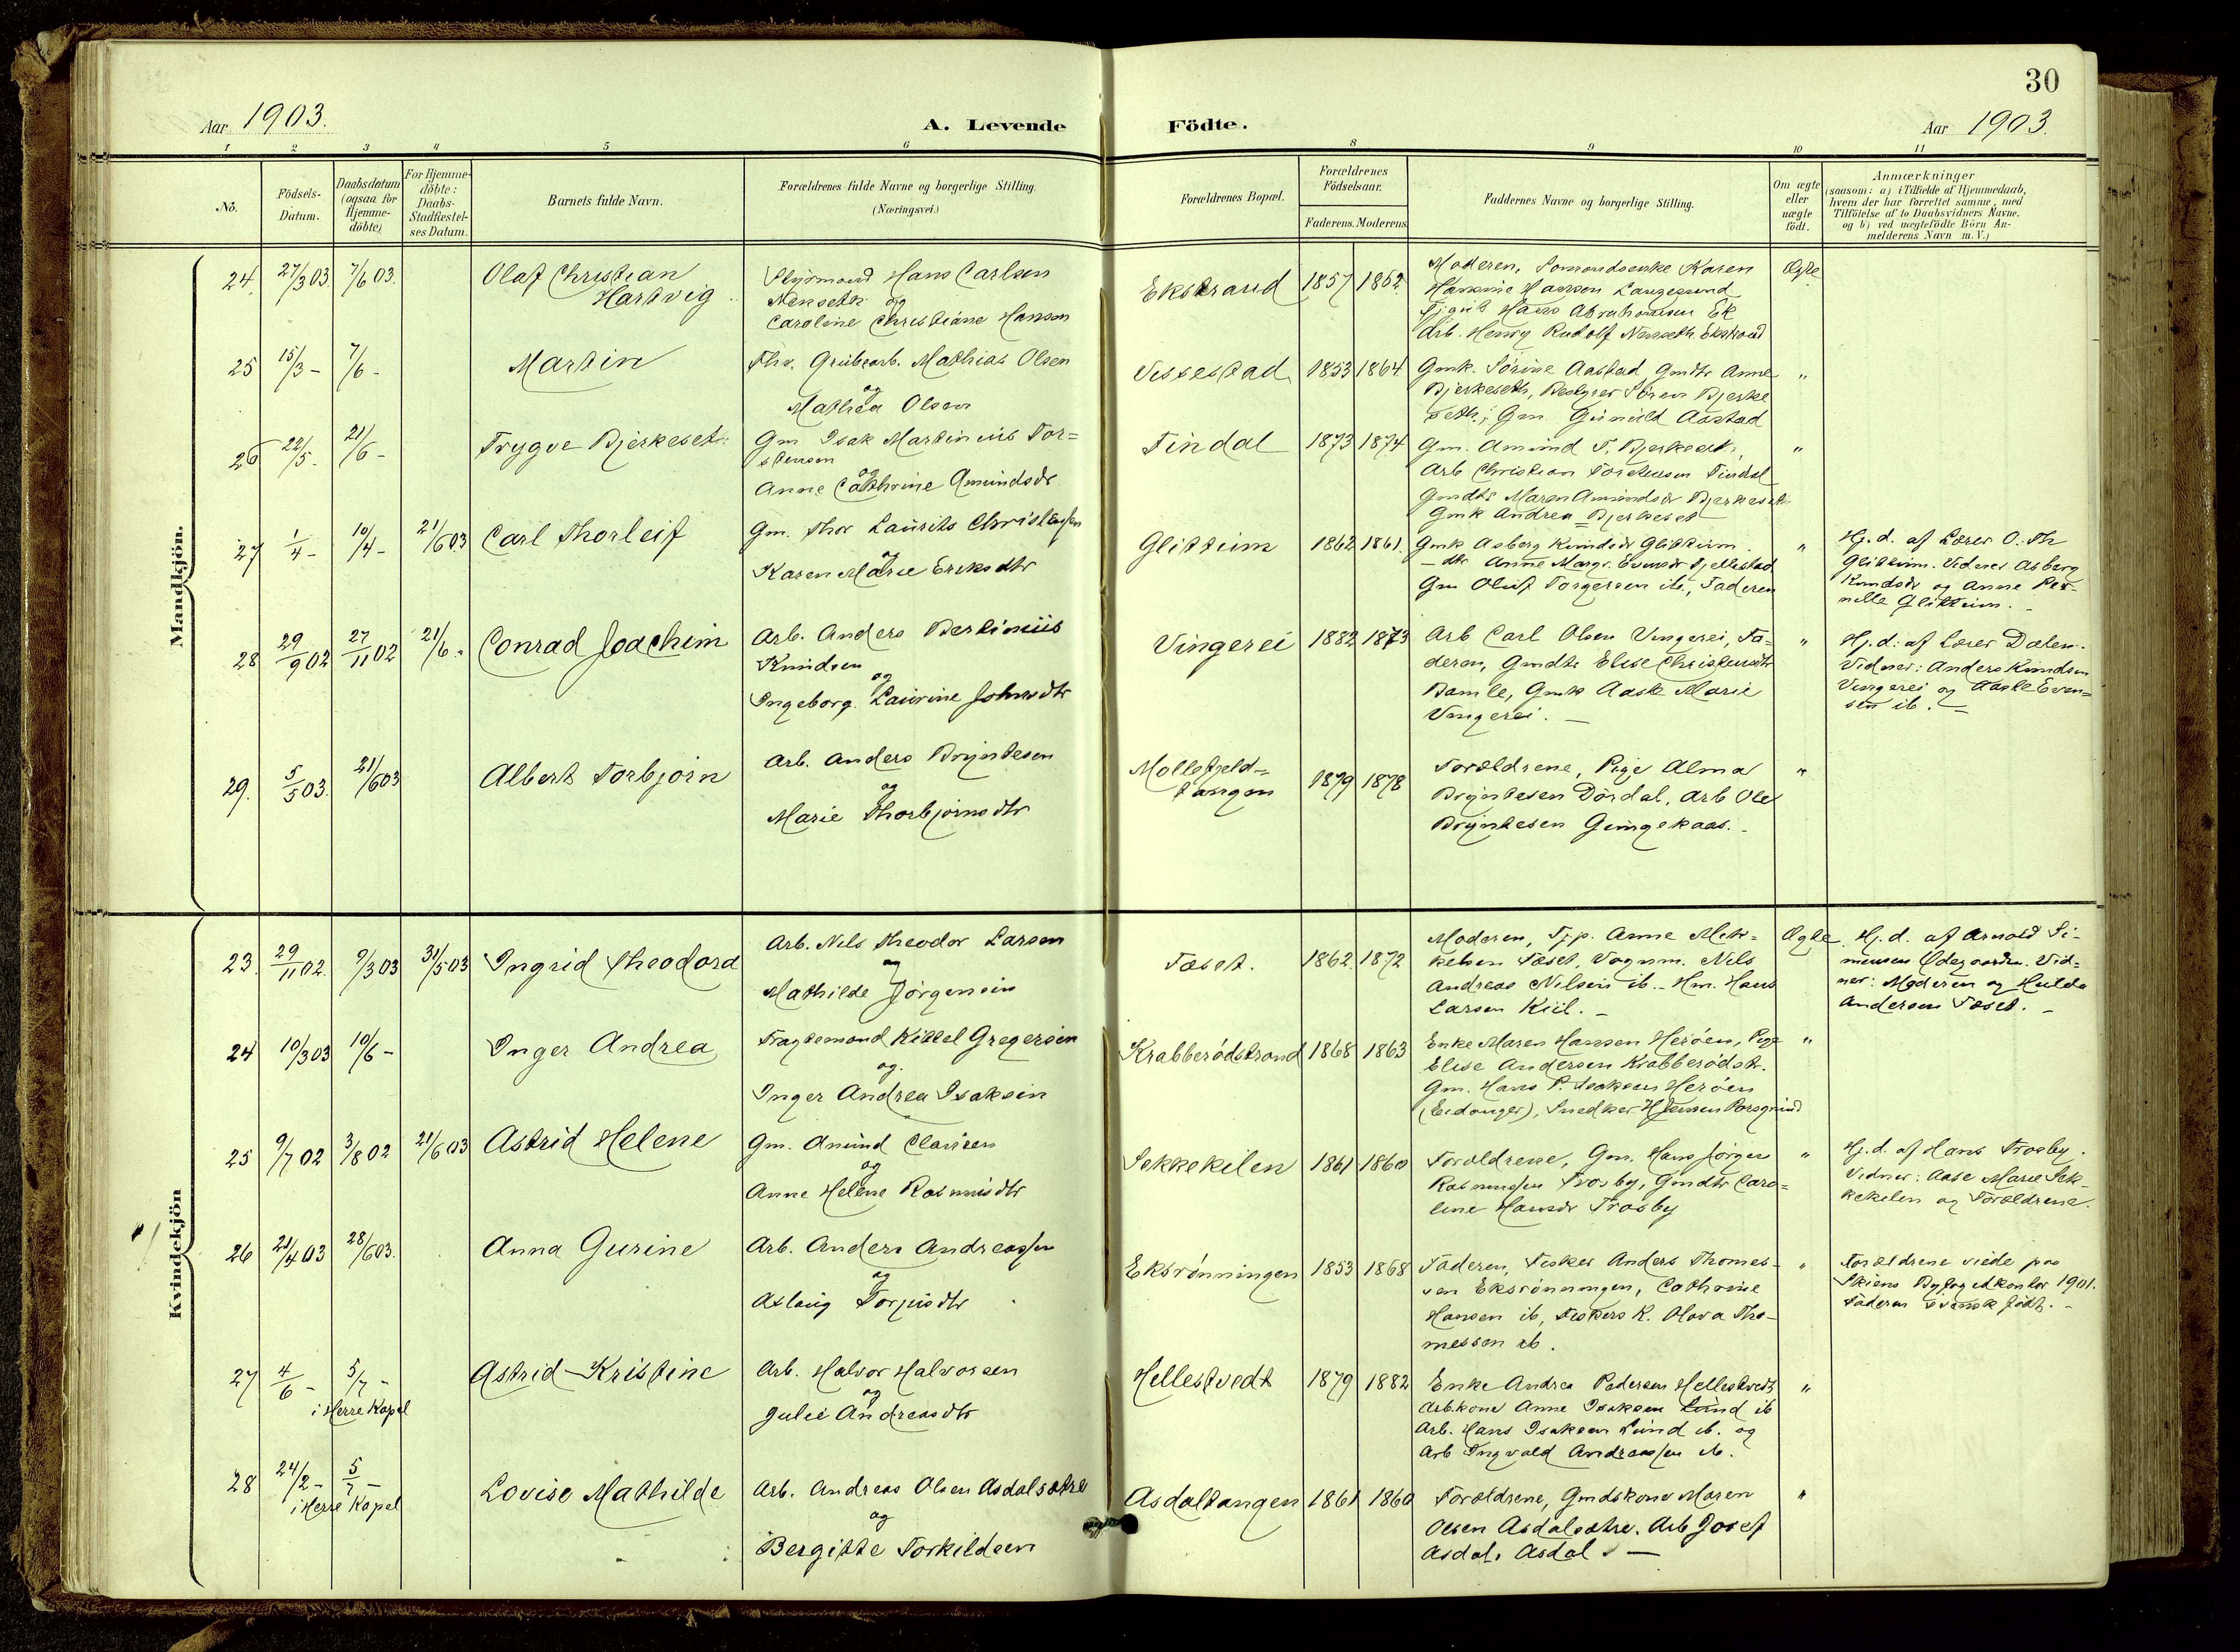 30
Aar 1903.
A. Levende Födte.
Aar 1903.
1 2 3 4 5 6 8 9 10 11
No.
Födsels-Datum.
Daabsdatum (ogsaa for Hjemme-döbte)
For Hjemme-döbte: Daabs-Stadfæstel-ses Datum.
Barnets fulde Navn.
Forældrenes fulde Navne og borgerlige Stilling.
(Næringsvei.)
Forældrenes Bopæl.
Forældrenes Födselsaar.
Faderens. Moderens.
Faddernes Navne og borgerlige Stilling.
Om ægte eller uægte födt.
Anmærkninger
(saasom: a) i Tilfælde af Hjemmedaab,
hvem der har forrettet samme, med
Tilföielse af to Daabsvidners Navne,
og b) ved uægtefödte Börn An-
melderens Navn m.V.)
Mandkjön.
24. 27/3 03 7/6 03.
Olaf Christian
Hartvig
Styrmand Hans Carlsen
og
Caroline Christiane Hansen
Ekstrand 1857 1862
Moderen, Karen
Hansen Langesund
Hans Abrahamsen Ek
Arb. Henry Rudolf Ekstrand
Ægte
25 15/3 - 7/6 -
Martin
Fhv. Grubearb. Mathias Olsen
og
Mathea Olsen
Vissestad 1853 1864
Gmk. Sörine Aastad, Gmdtr Anne
Bjerkeseth, Bestyrer Sören Bjerke
seth, Gm. Gunuld Aastad
"
26 22/5 - 21/6 -
Trygve Bjerkeset
Gm Isak Martinius Tor=
stensen
og
Anne Cathrine Amundsdr
Findal 1873 1874
Gm. Amund T. Bjerkeset,
Arb Christian Torstensen Findal
Gmdtr Maren Amundsdr Bjerkeset
Gmk Andrea Bjerkeset
"
27 1/4 - 10/4 - 21/6 03
Carl Thorleif
Gm. Thor Laurits Christensen
og
Karen Marie Eriksdtr
Glittum 1862 1861.
Gmk Asberg Knudsdr Glittum.
- dtr Anne Margr. Evensdr Fjellestad
Gm Oluf Torgersen ib., Faderen
"
Hj. d. af Lærer O. Th
Glittum. Vidner Asberg
Knudsdr og Anne Per-
nille Glittum. -
28 29/9 02 27/11 02 21/6 -
Conrad Joachim
Arb. Anders Bertinius
Knudsen
og
Ingeborg Laurine Johnsdtr
Vingerei 1882 1873
Arb Carl Olsen Vingerei, Fa-
deren, Gmdtr Elise Christensdtr
Bamle, Gmk Aask Marie
Vingerei. -
"
Hj. d: af Lærer Dalen.
Vidner: Anders Knudsen
Vingerei og Aasle Even=
sen ib. -
29. 5/5 03. 21/6 03
Albert Torbjörn
Arb. Anders Bryntesen
og
Marie Thorbjörnsdtr
Mollefjeld-
tangen 1879 1878
Forældrene, Pige Alma
Bryntesen Dördal, Arb Ole
Bryntesen Gungekaas. -
"
Kvindekjön
23. 29/11 02. 9/3 03 31/5 03
Ingrid Theodora
Arb. Nels Theodor Larsen
og
Mathilde Jörgensen
Fæset. 1862. 1872
Moderen, Tjp. Anne Mik=
kelsen Fæset, Vognm. Nils
Andreas Nilsen ib. - Hm. Hans
Larsen Kiil. -
Ægte
Hj. d. af Arnold Si-
monsen Ödegaarden. Vid=
ner: Moderen og Hulda
Andersen Fæset. -
24 10/3 03 10/6 -
Inger Andrea
Fragtemand Kittel Gregersen
og.
Inger Andrea Isaksen
Krabberödstrand 1868 1863
Enke Maren Hansen Heröen, Pige
Elise Andersen Krabberödstr.
Gm. Hans P. Isaksen Heröen
(Eidanger), Snedker H. Jensen Porsgrund
"
25 9/7 02 3/8 02 21/6 03
Astrid Helene
Gm. Amund Clausen
og
Anne Helene Rasmusdtr
Sekkekilen 1861 1860
Forældrene, Gm. Hans Jörgen
Rasmussen Trosby, Gmdtr Caro=
line Hansdr Trosby
"
Hj. d. af Hans Trosby.
Vidner: Aase Marie Sek-
kekilen og Forældrene.
26 21/4 03 28/6 03.
Anna Gurine
Arb. Anders Andreassen
og
Aslaug Torjusdtr
Eksrønningen 1853 1868
Faderen, Fisker Anders Thomes-
sen Eksrönningen, Cathrine
Hansen ib, Fiskers K. Olava Tho-
messen ib.
"
Forældrene viede paa
Skiens Byfogedkontor 1901.
Faderen svensk født. -
27 4/6 - 5/7 -
i Herre Kapel
Astrid Kristine
Arb. Halvor Halvorsen
og
Julie Andreasdtr
Hellestvedt 1879 1882
Enke Andrea Pedersen Hellestvedt
Arbkone Anne Isaksen Lund ib
Arb. Hans Isaksen Lund ib. og
Arb Ingvald Andreassen ib.
"
28 24/2 - 5/7 -
i Herre Kapel
Lovise Mathilde
Arb. Andreas Olsen Asdalsætre
og
Bergitte Torkildsen
Asdaltangen 1861 1860
Forældrene, Gmdskone Maren
Olsen Asdalsætre. Arb Josef
Asdal. Asdal. -
"